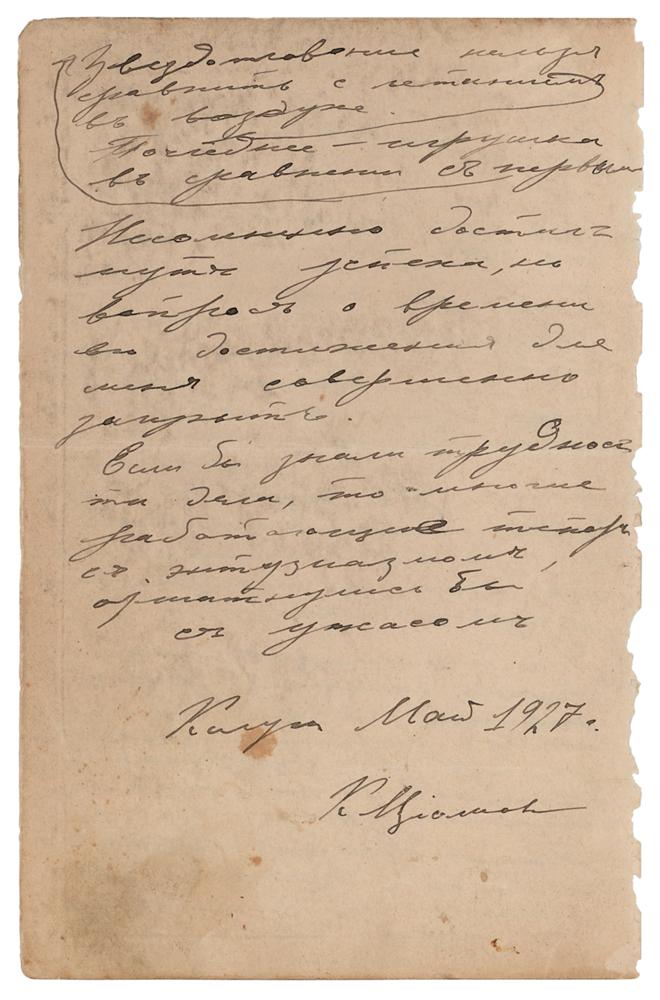 Звездоплавание нельзя
сравнить с летанием
въ воздухе.
Последнее – игрушка
въ сравнении съ первым
Несомненно достиг
нутъ успеха, но
вопросъ о времени
его достижения для
меня совершенно
закрытъ.
Если бы знали труднос
ти дела, то многие
работающие теперь
съ энтузиазмомъ,
отшатнулись бы
съ ужасомъ
Калуга Май 1927 г.
К Циолков